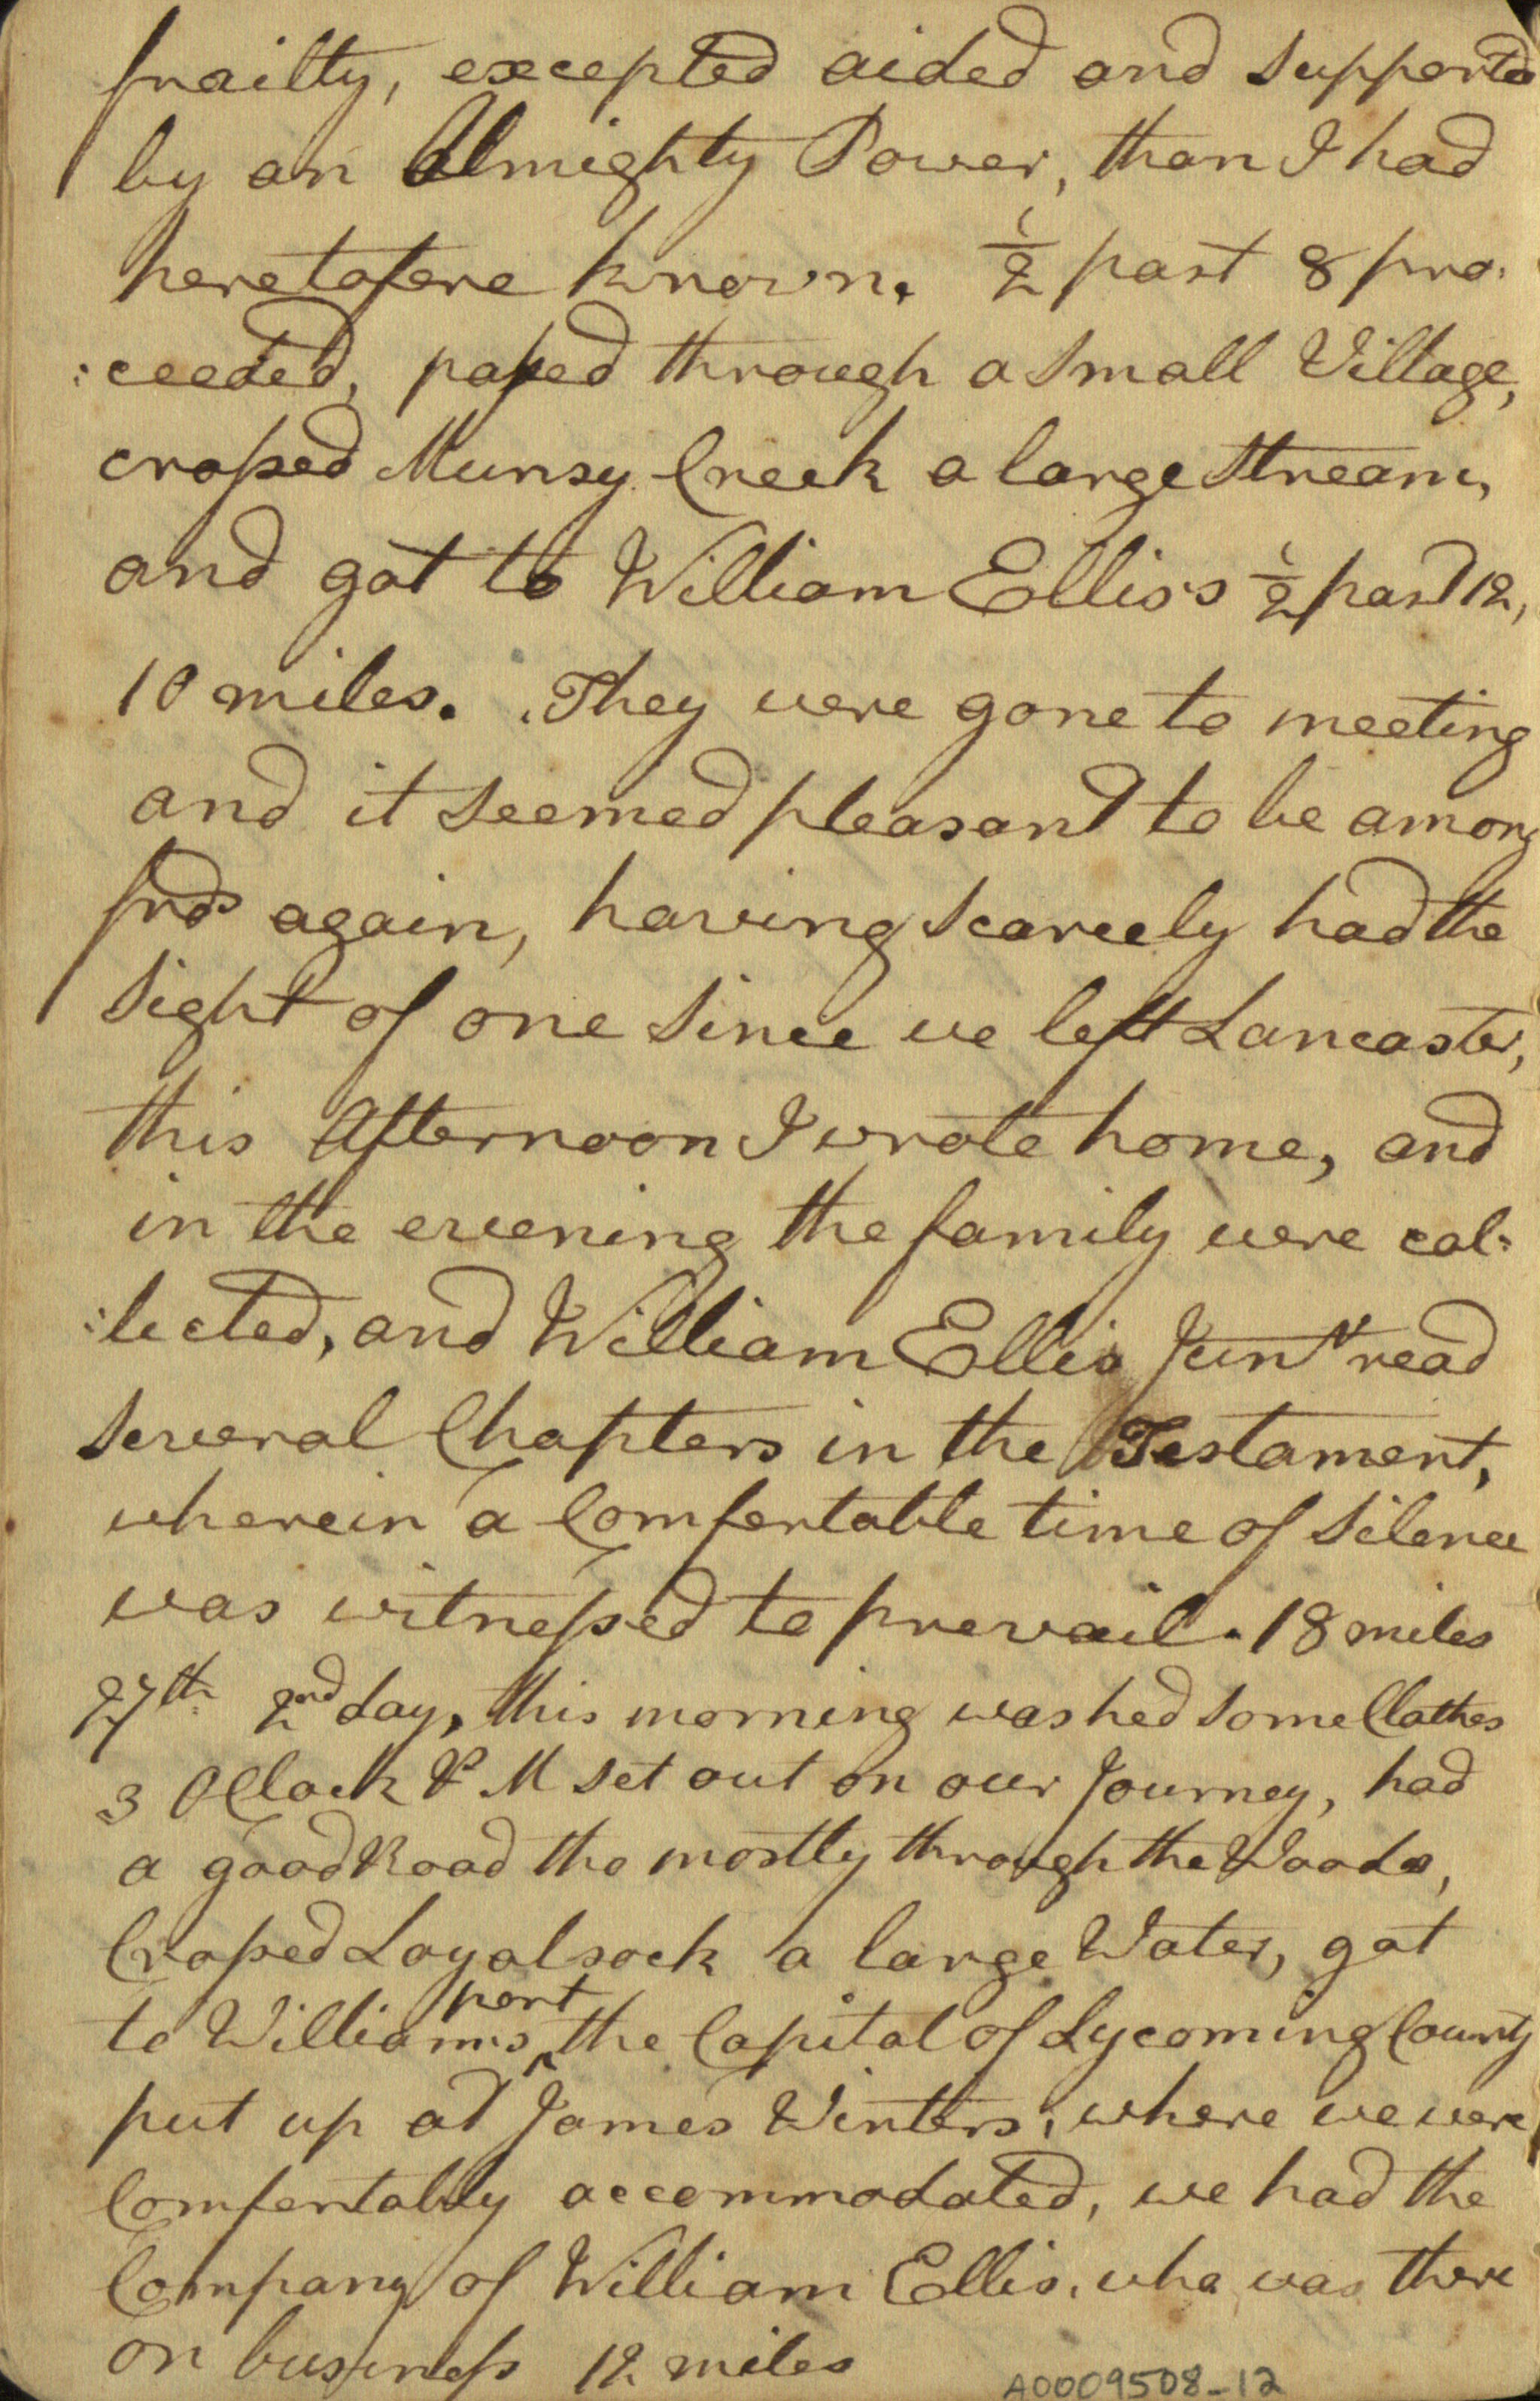 frailty, excepted aided and supported
by an Almighty Power, than I had
heretofore known. ½ past 8 pro:
:ceeded, paſsed through a small Village,
croſsed Munsy Creek a large stream,
and got to William Ellis's ½ past 12,
10 miles. They were gone to meeting
and it seemed pleasant to be among
frds again, having scarcely had the
sight of one since we left Lancaster,
this Afternoon I wrote home, and
in the evening the family were col:
:lected, and William Ellis Junr read
several Chapters in the Testament,
wherein a Comfortable time of Silence
was witneſsed to prevail. 18 miles
27th 2nd day, this morning washed some Clothes
3 OClock P.M set out on our Journey, had
a good Road tho mostly through the Woods,
Croſsed Loyalsock a large Water, got
to Williamsport the Capital of Lycoming County
put up at James Winters, where we were
Comfortably accommodated, we had the
Company of William Ellis, who was there
on busineſs 12 miles
A0009508-12